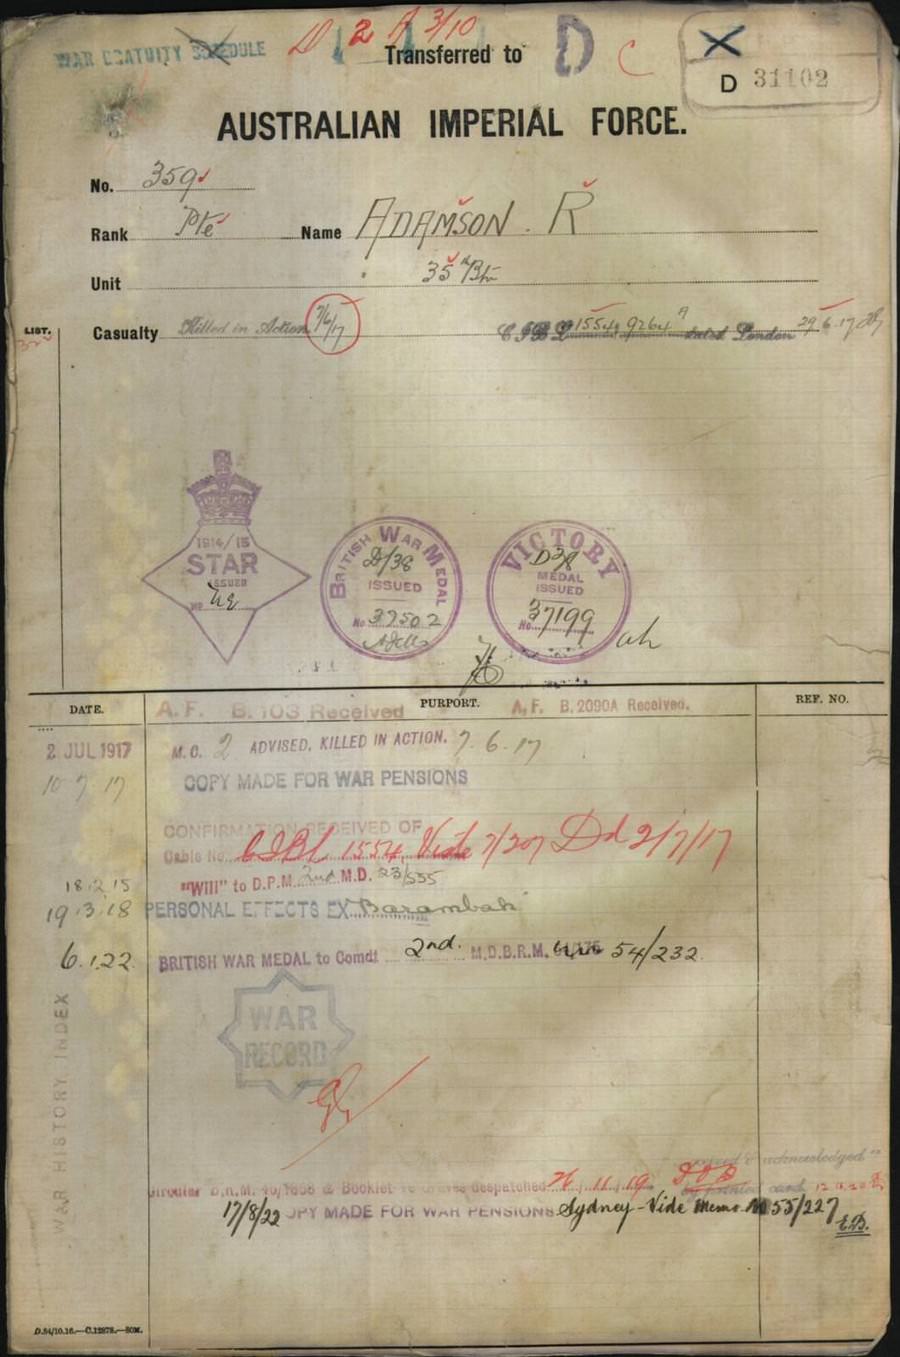 WAR GRATUITY SCHEDULE
D 2 A 3/10
Transferred to D C
X
D 31102
AUSTRALIAN IMPERIAL FORCE.
No. 359
Rank Pte Name ADAMSON. R
Unit 35th Btn
LIST.
Casualty Killed in Action 7/6/17 1554 9264 A dated London 29.6.17
1914/15
STAR
ISSUED
No
BRITISH WAR MEDAL
D/38
ISSUED
No 37502
VICTORY
D38
MEDAL
ISSUED
No. 37199
DATE. PURPORT. REF. NO.
A.F. B.103 Received A.F. B.2090A Received.
2 JUL 1917 M.C. 2 ADVISED, KILLED IN ACTION. 7.6.17
10 7 17 COPY MADE FOR WAR PENSIONS
CONFIRMATION RECEIVED OF
Cable No. 1554 Vide 7/207 Dd 2/7/17
18.2.15 "Will" to D.P.M. 2nd M.D. 23/535
19 3 18 PERSONAL EFFECTS EX Barambah
6.1.22 BRITISH WAR MEDAL to Comdt 2nd. M.D.B.R.M. 54/232.
WAR
RECORD
WAR HISTORY INDEX
acknowledged
Circular B.R.M. 40/1858 & Booklet re Graves despatched 26.11.19
17/8/22 COPY MADE FOR WAR PENSIONS Sydney - Vide Memo M 55/227
E.B.
D.54/10.16.—C.12878.—50M.